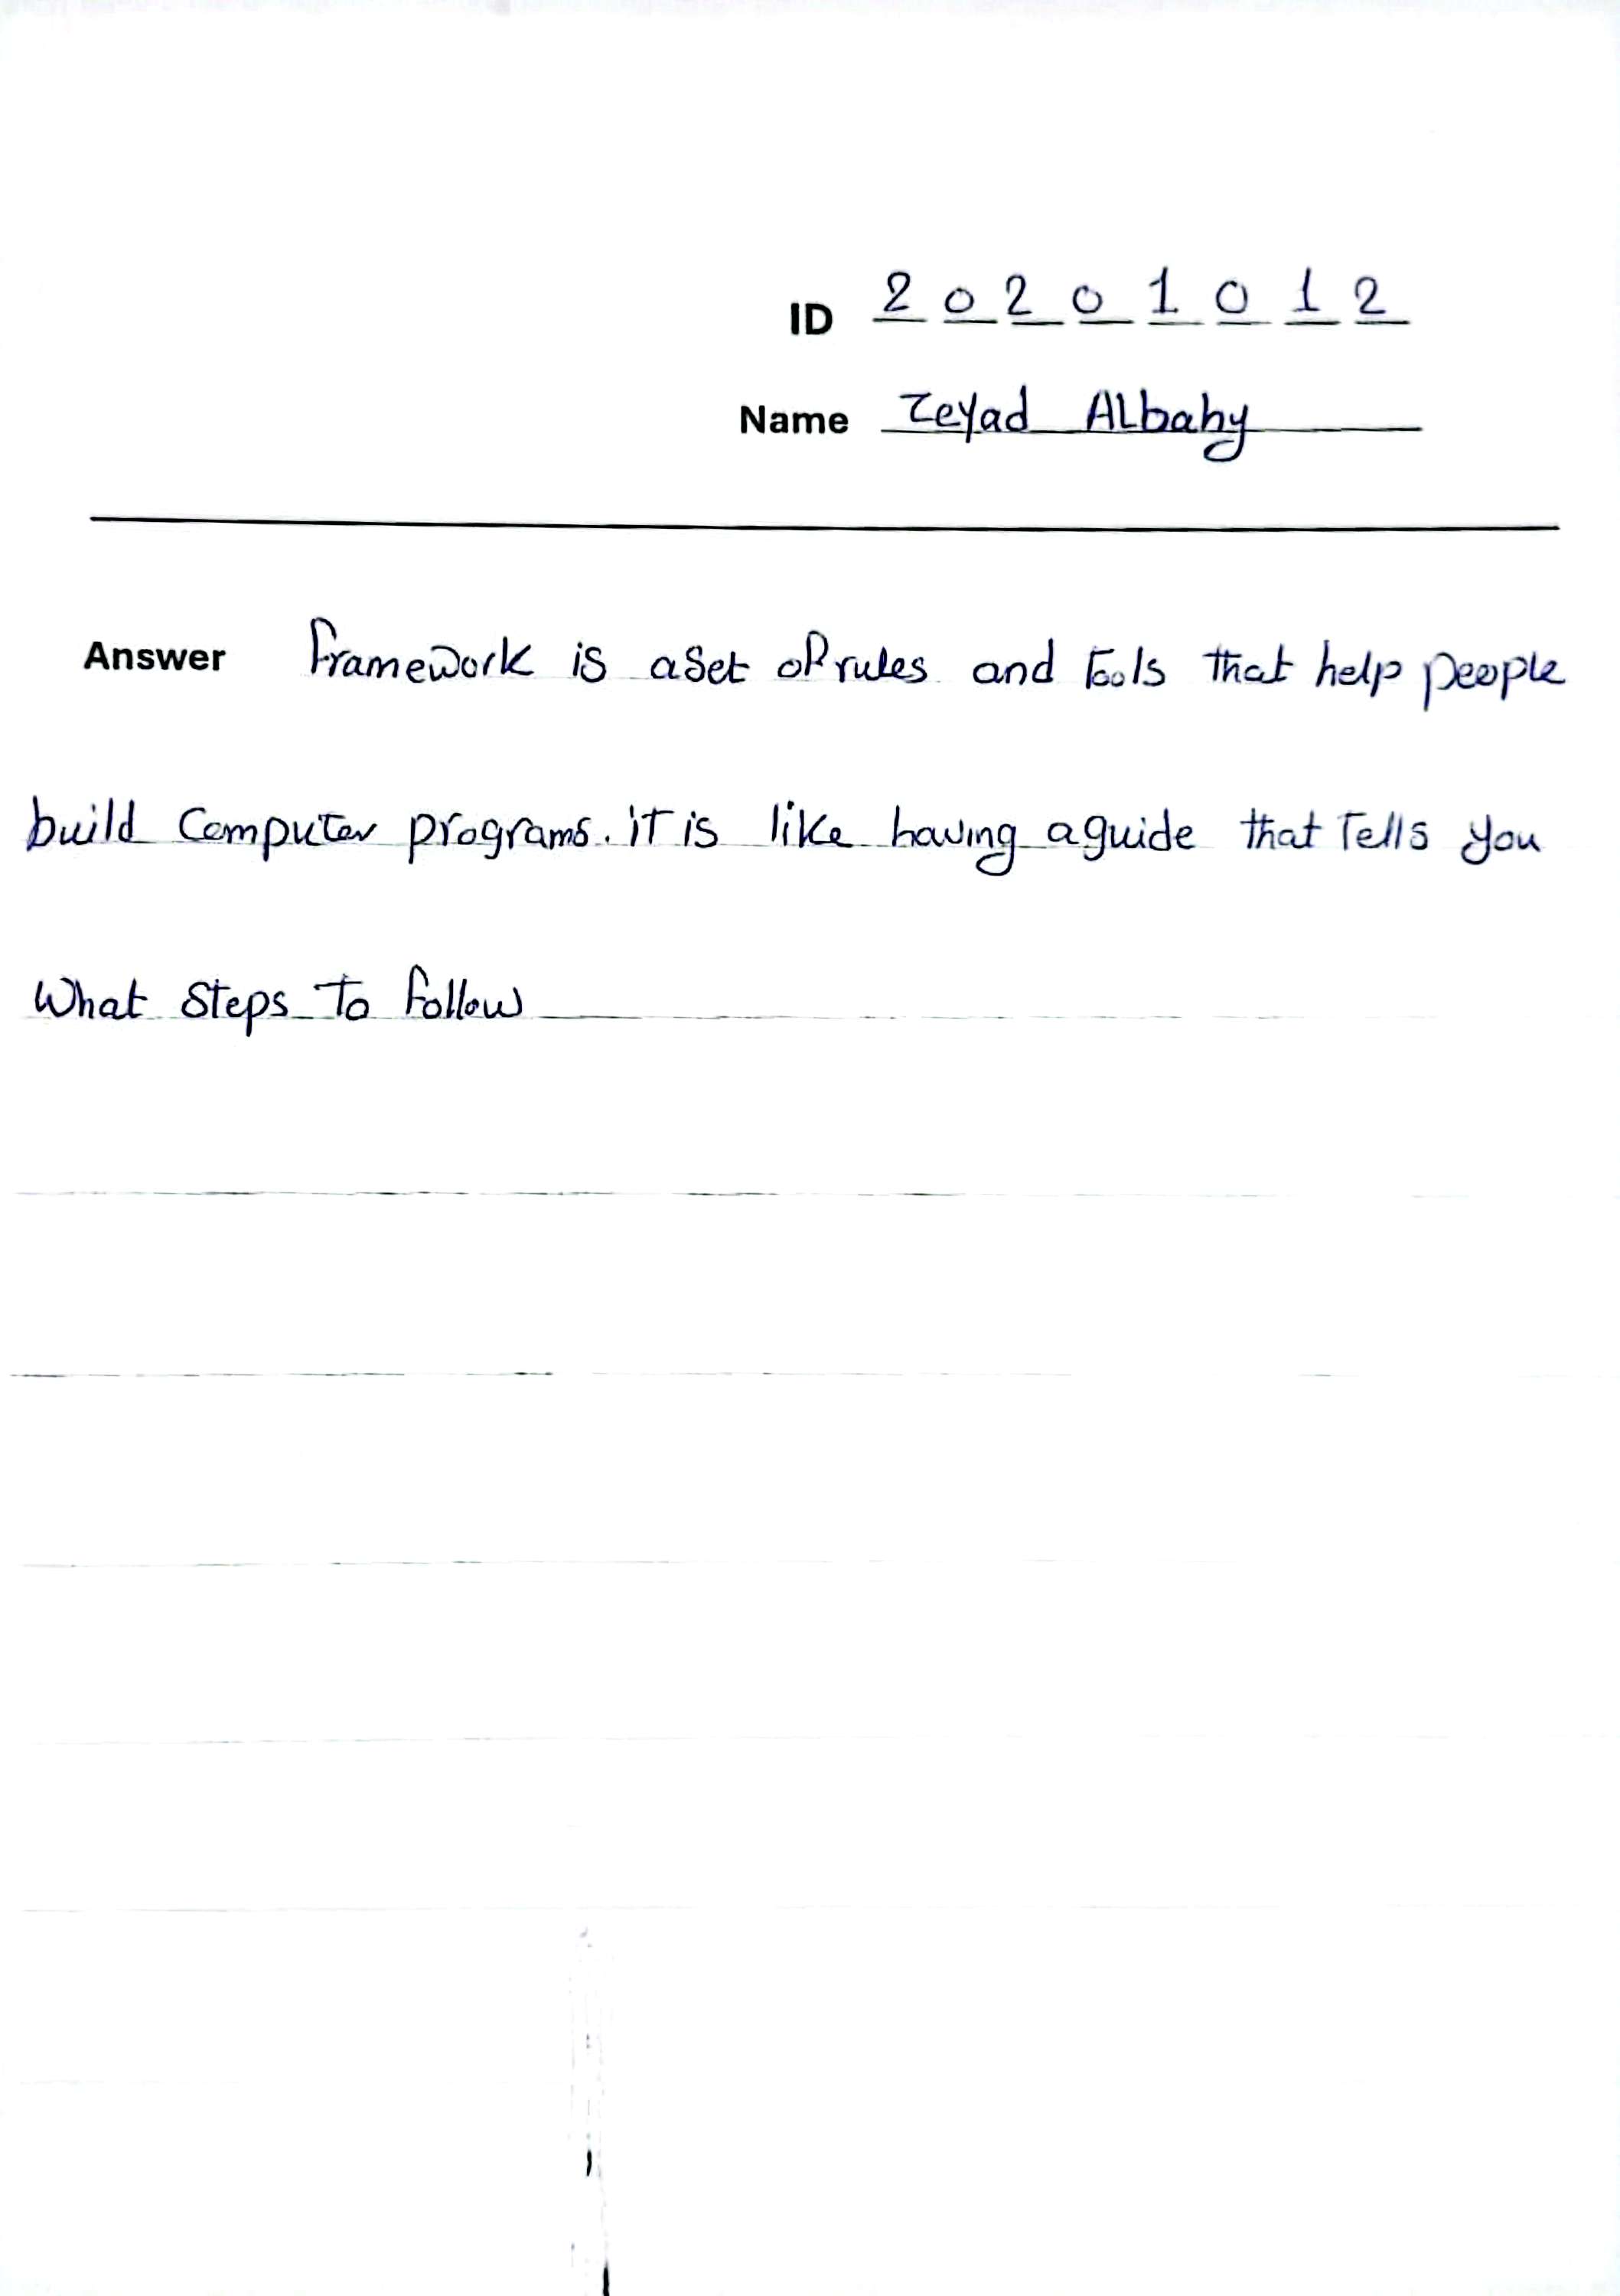 ID 2 0 2 0 1 0 1 2
Name Zeyad ALbahy
Answer framework is a set of rules and tools that help people
build Computer programs. it is like having a guide that tells you
What steps to follow